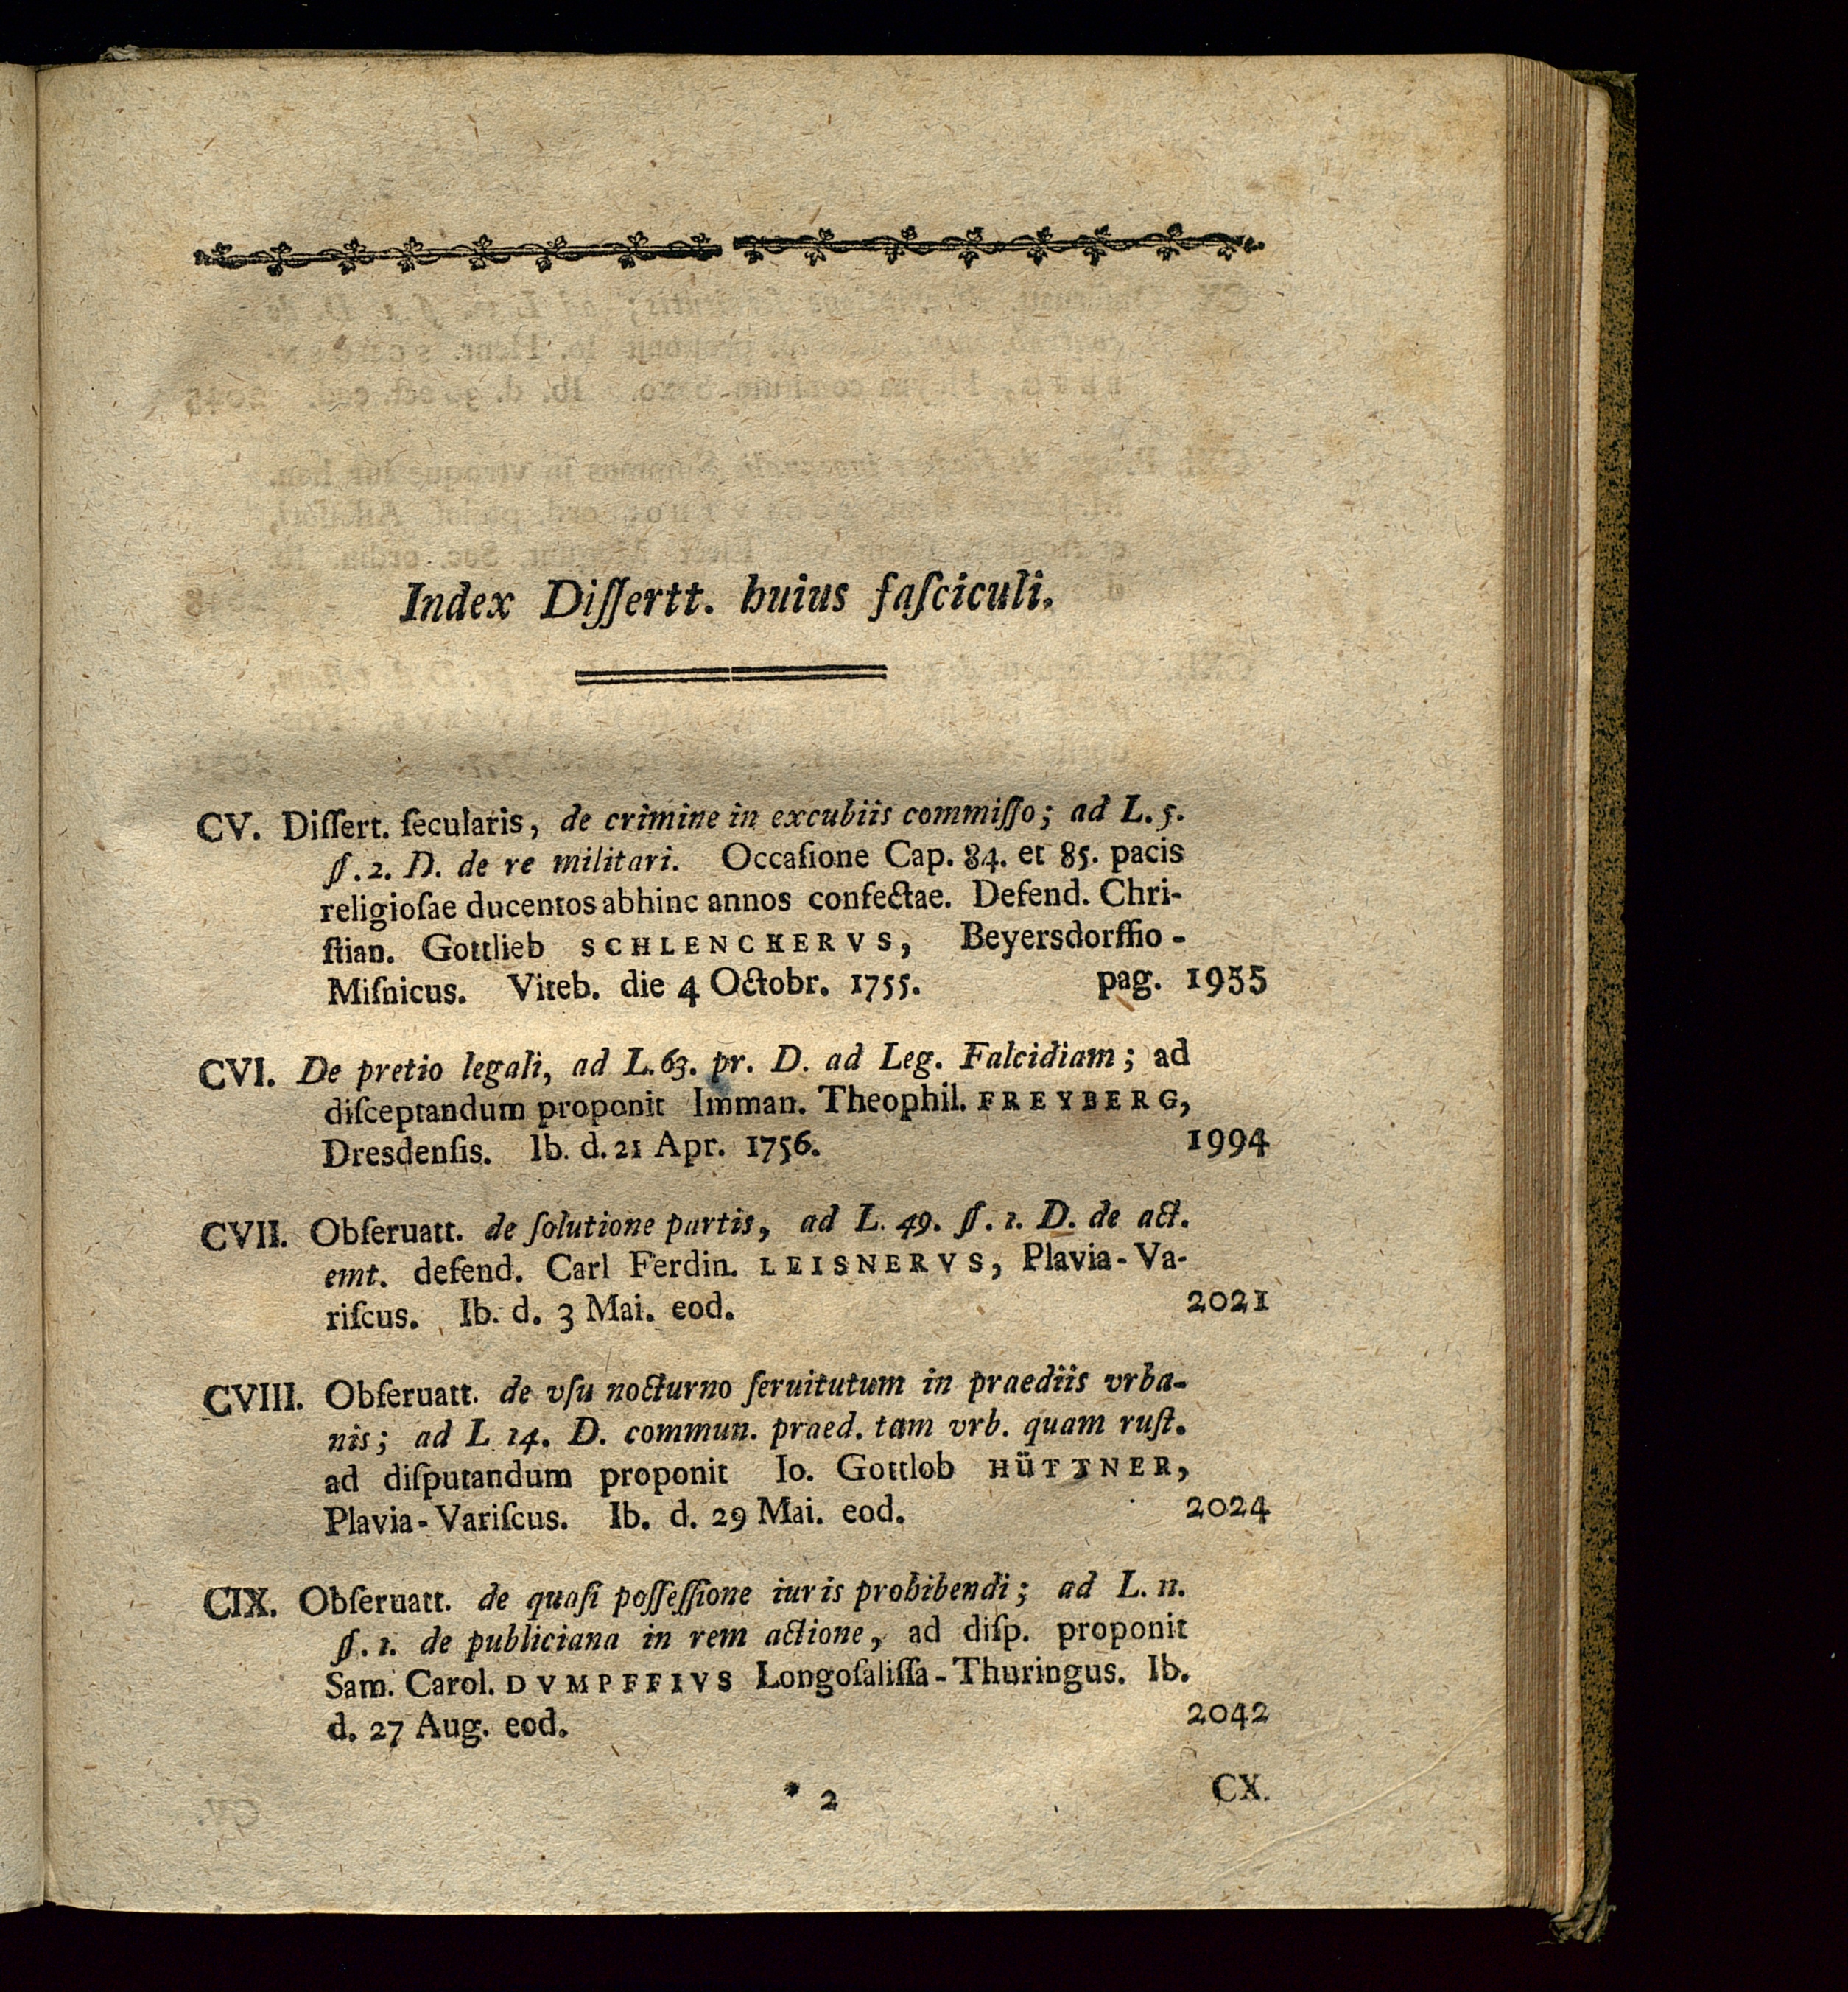 Index Diſſertt. huius faſciculi.
CV. Diſſert. ſecularis, de crimine in excubiis commiſſo; ad L. 5.
§. 2. D. de re militari. Occaſione Cap. 84. et 85. pacis
religioſae ducentos abhinc annos confectae. Defend. Chri-
ſtian. Gottlieb SCHLENCKERVS, Beyersdorffio-
Miſnicus. Viteb. die 4 Octobr. 1755. pag. 1955
CVI. De pretio legali, ad L. 63. pr. D. ad Leg. Falcidiam; ad
diſceptandum proponit Imman. Theophil. FREYBERG,
Dresdenſis. Ib. d. 21 Apr. 1756. 1994
CVII. Obſeruatt. de ſolutione partis, ad L. 49. §. 1. D. de act.
emt. defend. Carl Ferdin. LEISNERVS, Plavia-Va-
riſcus. Ib. d. 3 Mai. eod. 2021
CVIII. Obſeruatt. de vſu nocturno ſeruitutum in praediis vrba-
nis; ad L 14. D. commun. praed. tam vrb. quam ruſt.
ad diſputandum proponit Io. Gottlob HÜTTNER,
Plavia-Variſcus. Ib. d. 29 Mai. eod. 2024
CIX. Obſeruatt. de quaſi poſſeſſione iuris prohibendi; ad L. 11.
§. 1. de publiciana in rem actione, ad diſp. proponit
Sam. Carol. DVMPFFIVS Longoſaliſſa-Thuringus. Ib.
d. 27 Aug. eod. 2042
* 2 CX.